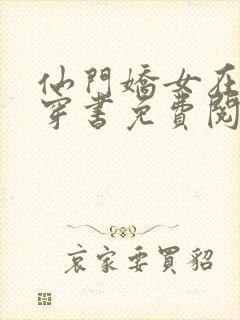 仙門嬌女在
穿書免費閱
哀家要買貂